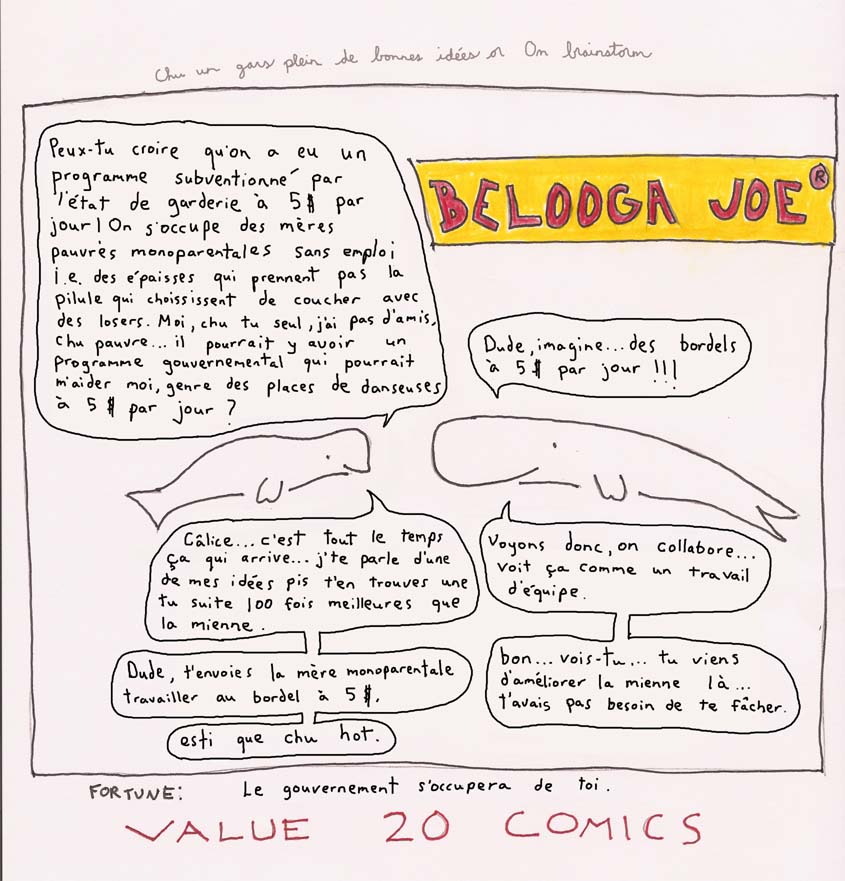 Chu un gars plein de bonnes idées or On brainstorm
Peux-tu croire qu'on a eu un
programme subventionné par
l'état de garderie à 5$ par
jour! On s'occupe des mères
pauvres monoparentales sans emploi
i.e. des épaisses qui prennent pas la
pilule qui choississent de coucher avec
des losers. Moi, chu tu seul, j'ai pas d'amis,
chu pauvre... il pourrait y avoir un
programme gouvernemental qui pourrait
m'aider moi, genre des places de danseuses
à 5$ par jour?
BELOOGA JOE®
Dude, imagine... des bordels
à 5$ par jour!!!
Câlice... c'est tout le temps
ça qui arrive... j'te parle d'une
de mes idées pis t'en trouves une
tu suite 100 fois meilleures que
la mienne.
Voyons donc, on collabore...
voit ça comme un travail
d'équipe.
Dude, t'envoies la mère monoparentale
travailler au bordel à 5$.
esti que chu hot.
bon... vois-tu... tu viens
d'améliorer la mienne là...
t'avais pas besoin de te fâcher.
FORTUNE: Le gouvernement s'occupera de toi.
VALUE 20 COMICS